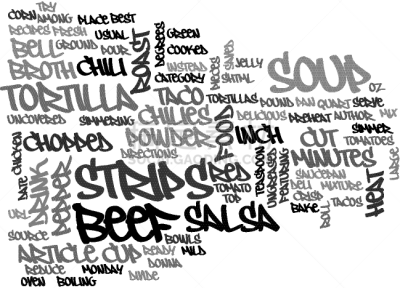 CORN TRY AMONG PLACE BEST
RECIPES FRESH USUAL DEGREES GREEN
BELL GROUND POUR ROAST COOKED
BROTH CHILI INSTEAD PIECES SAVED JELLY SOUP
CATEGORY SHTML
TORTILLA TACO TORTILLAS OZ
POUND PAN QUART SERVE
UNCOVERED SIMMERING CHILIES DELICIOUS PREHEAT AUTHOR MIX
CHOPPED POWDER FOOD INCH CUT SIMMER
TOMATOES
DATE CHICKEN DIRECTIONS MINUTES LARGE
DRUNK PEPPER STRIPS RED TEASPOON UNGREASED FEATURING SAUCEPAN
DELL MIXTURE HEAT
TOMATO CRISP TACOS
URL BEEF TOP SALSA BAKE
ROLL
SOURCE BOWLS
ARTICLE CUP READY MILD
REDUCE MONDAY DONNA
OVEN BOILING DIVIDE